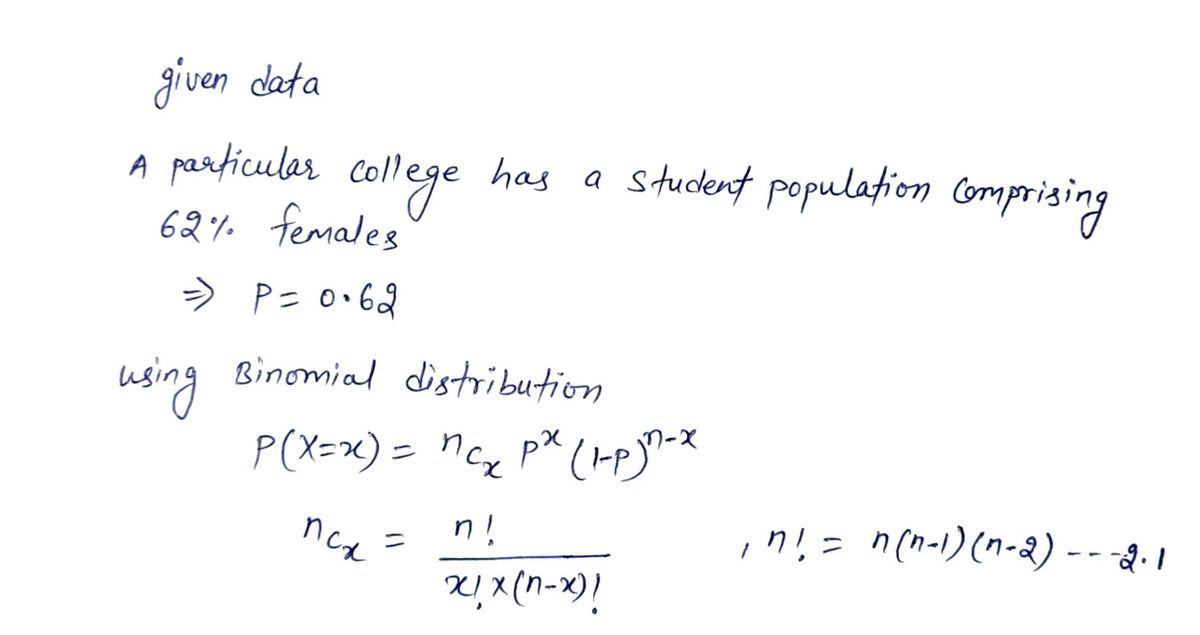 given data
A particular college has a student population comprising
62% females
⇒ P = 0.62
using Binomial distribution
P(X=x) = nCx p^x (1-p)^n-x
nCx = n! / x! x (n-x)! , n! = n(n-1)(n-2) ---2.1